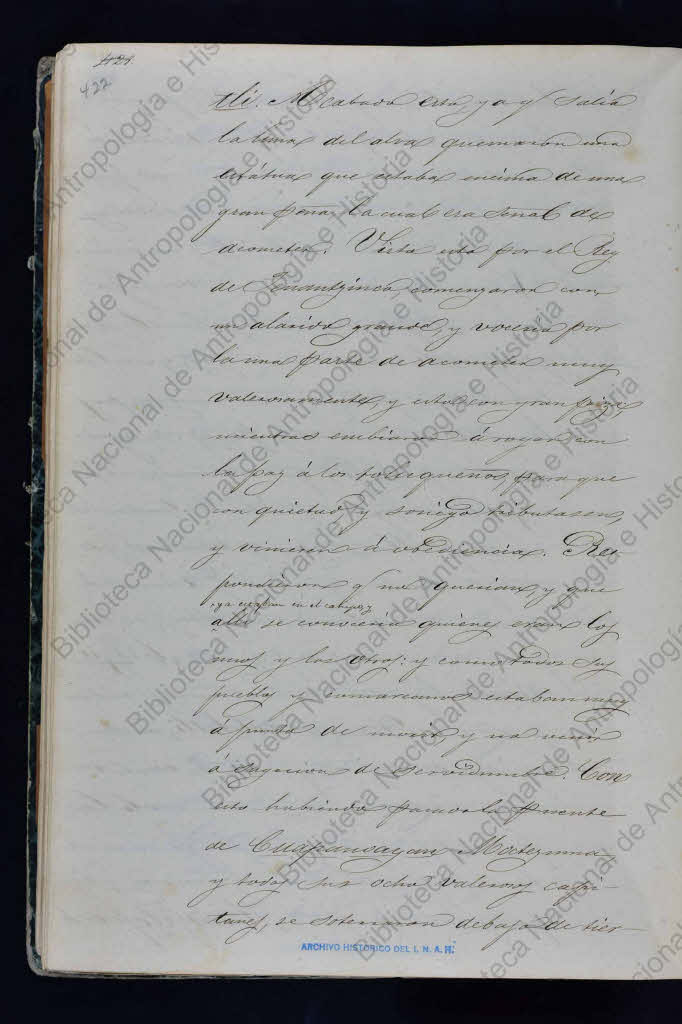 421.
422
tli. Acabado esto, ya q̃ salia
la luna del alva quemaron una
estátua que estaba encima de una
gran peña, la cual era señal de
acometer. Visto esto por el Rey
de Tenantzinco, comenzaron con
un alarido grande, y voceria por
la una parte de acometer muy
valerosamente, y esto con gran priza,
mientras embiaron á rogar con
la paz á los toluqueños, para que
con quietud y sosiego tributasen,
y viniesen á obediencia. Res-
pondieron q̃ no querian, y que
ya estaban en el campo, y
alli se conoceria quienes eran los
unos y los otros: y como todos sus
pueblos y comarcanos estaban muy
á punto de morir, y no venir
á sugecion de servidumbre. Con
esto habiendo pasado la puente
de Cuapanoayan Motezuma,
y todos sus ocho valerosos capi-
tanes, se soterraron debajo de tier-
ARCHIVO HISTORICO DEL I. N. A. H.
Biblioteca Nacional de Antropología e Historia